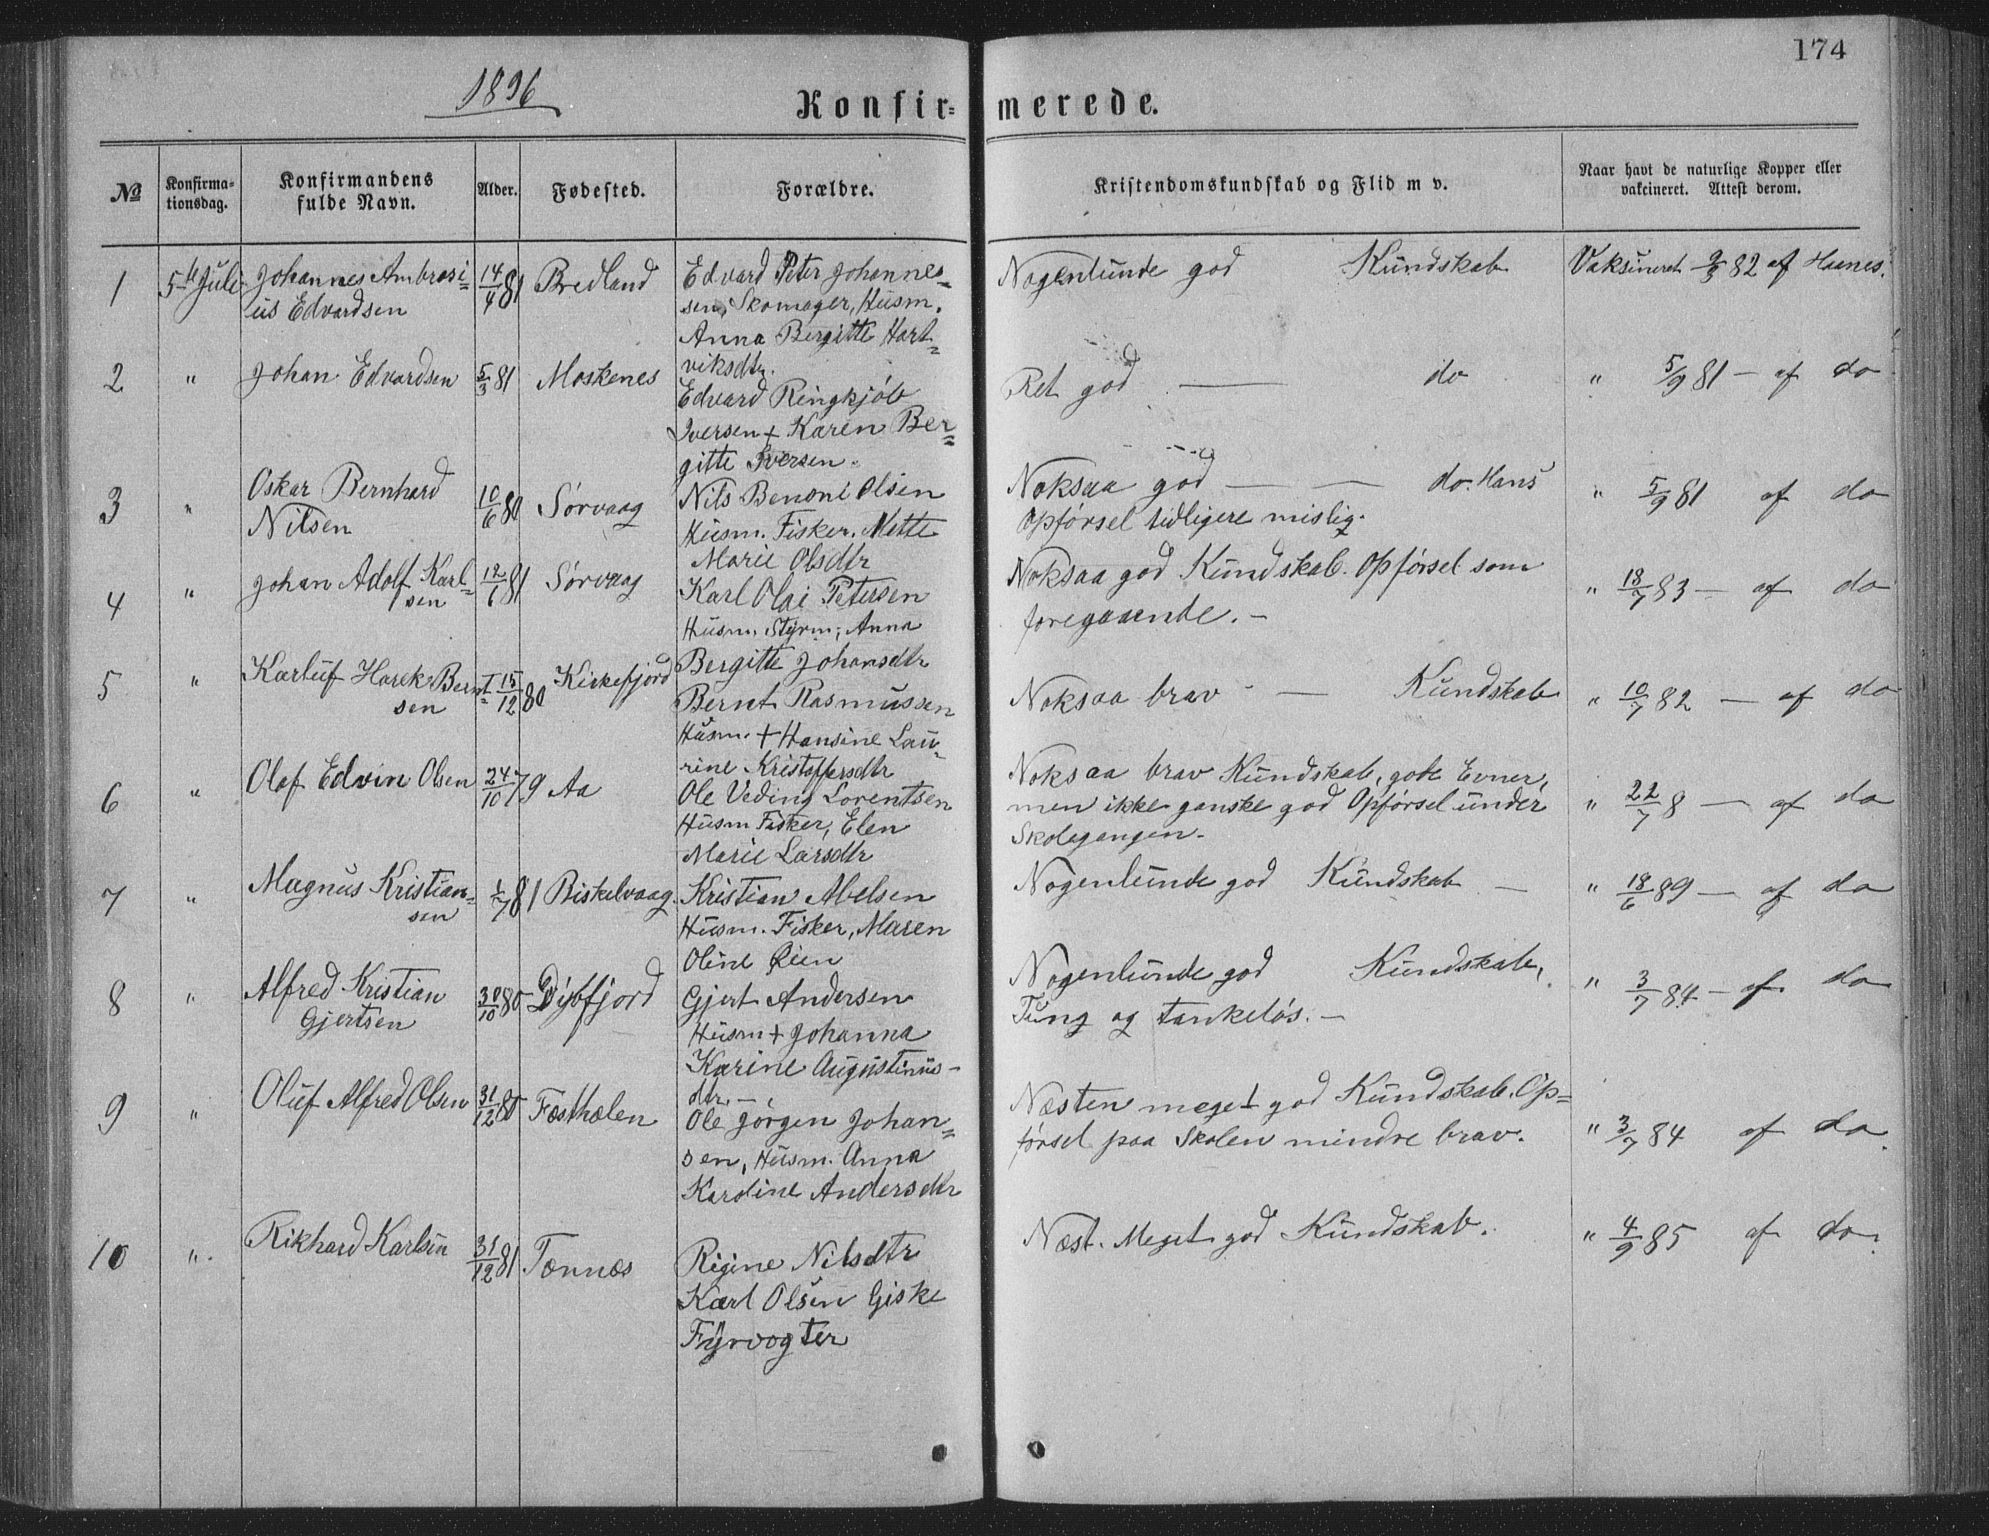 174
1896
Konfir=merede.
№ | Konfirma=tionsdag. | Konfirmandens fulde Navn. | Alder. | Fødested. | Forældre. | Kristendomskundskab og Flid m v. | Naar havt de naturlige Kopper eller vakcineret. Attest derom.
1 | 5te Juli | Johannes Ambrosi- | 14/4 81 | Bredland | Edvard Peter Johannes= | Nogenlunde god Kundskab | Vaksineret 9/3 82 af Haenes.
us Edvardsen | sen, Skomager, Husm.
Anna Bergitte Hart=
viksdtr.
2 | " | Johan Edvardsen | 5/3 81 | Moskenes | Edvard Ringkjøb | Ret god — do | " 5/9 81 — af do
Iversen + Karen Ber=
gitte Iversen.
3 | " | Oskar Bernhard | 10/6 80 | Sørvaag | Nils Benoni Olsen | Noksaa god — — do. Hans | " 5/9 81 af do
Nilsen | Husm. Fisker. Mette | Opførsel tidligere mislig.
Marie Olsdtr
4 | " | Johan Adolf Karl- | 12/6 81 | Sørvaag | Karl Olai Petersen | Noksaa god Kundskab. Opførsel som | " 13/7 83 — af do
sen | Husm. Styrm; Anna | foregaaende. —
Bergitte Johansdtr
5 | " | Karluf Harek Bernt- | 15/12 80 | Kirkefjord | Bernt Rasmussen | Noksaa brav — Kundskab | " 10/7 82 — af do
sen | Husm. + Hansine Lau-
rine Kristoffersdtr
6 | " | Olaf Edvin Olsen | 24/10 79 | Aa | Ole Veding Lorentsen | Noksaa brav Kundskab, gode Evner, | " 22/7 8 — af do
Husm Fisker, Elen | men ikke ganske god Opførsel under
Marie Larsdtr | Skolegangen.
7 | " | Magnus Kristian= | 1/7 81 | Biskelvaag. | Kristian Abelsen | Nogenlunde god Kundskab — | " 18/6 89 — af do
sen | Husm. Fisker, Maren
Oline Øien
8 | " | Alfred Kristian | 30/10 80 | Dybfjord | Gjert Andersen | Nogenlunde god Kundskab, | " 3/7 84 — af do
Gjertsen | Husm + Johanna | Tung og tankeløs. —
Karine Augustinus-
dtr. —
9 | " | Oluf Alfred Olsen | 31/12 80 | Fæsthælen | Ole Jørgen Johan= | Næsten meget god Kundskab. Op= | " 3/7 84 af do.
sen, Husm. Anna | førsel paa Skolen mindre brav.
Karoline Andersdtr
10 | " | Rikhard Karlsen | 31/12 81 | Tønnes | Rigine Nilsdtr | Næst. Meget god Kundskab. | " 4/9 85 af do.
Karl Olsen Giske
Fyrvogter